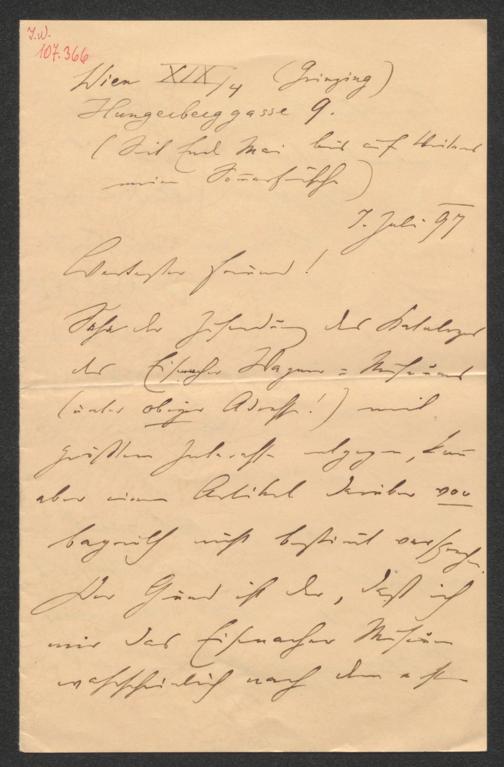 I.N.
107.366
Wien XIX/4 (Grinzing)
Hungerberggasse 9.
(Seit Ende Mai bis auf Weiteres
meine Sommerfrische)
7. Juli 97
Wertester Freund!
Sehe der Zusendung des Kataloges
des Eisenacher Wagner=Museums
(unter obiger Adresse!) mit
größtem Interesse entgegen, kann
aber einen Artikel darüber vor
Bayreuth nicht bestimmt versprechen.
Der Grund ist der, daß ich
mir das Eisenacher Museum
wahrscheinlich nach dem ersten